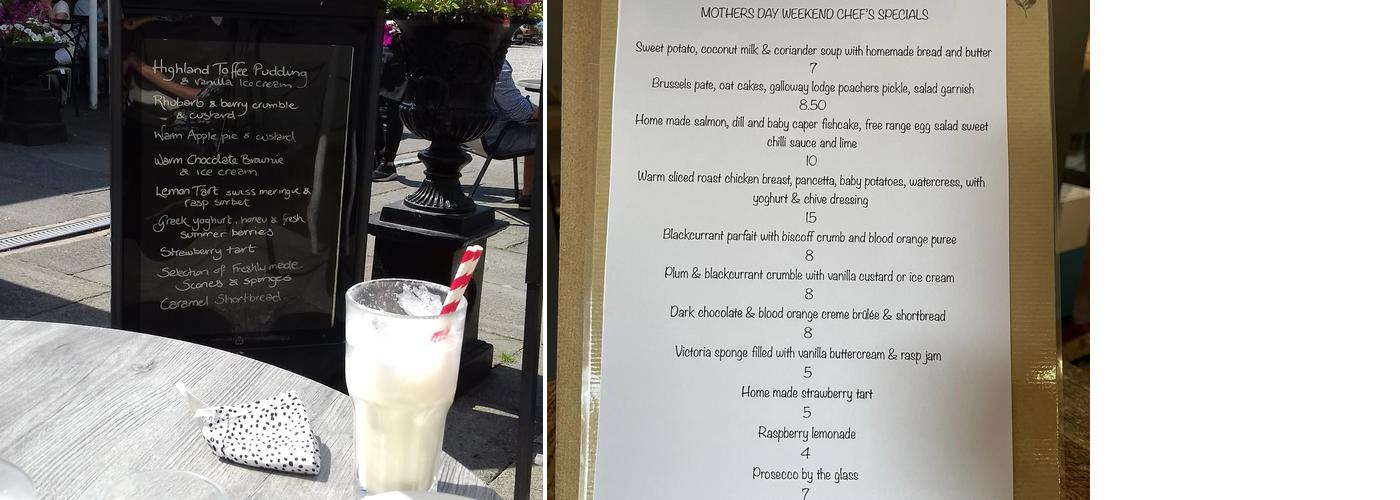 Highland Toffee Pudding
& vanilla Ice cream
Rhubarb & berry crumble
& custard
Warm Apple pie & custard
Warm Chocolate Brownie
& ice cream
Lemon Tart swiss meringue &
rasp sorbet
Greek yoghurt, honey & fresh
summer berries
Strawberry tart
Selection of Freshly made
Scones & sponges
Caramel Shortbread
MOTHERS DAY WEEKEND CHEF'S SPECIALS
Sweet potato, coconut milk & coriander soup with homemade bread and butter
7
Brussels pate, oat cakes, galloway lodge poachers pickle, salad garnish
8.50
Home made salmon, dill and baby caper fishcake, free range egg salad sweet
chilli sauce and lime
10
Warm sliced roast chicken breast, pancetta, baby potatoes, watercress, with
yoghurt & chive dressing
15
Blackcurrant parfait with biscoff crumb and blood orange puree
8
Plum & blackcurrant crumble with vanilla custard or ice cream
8
Dark chocolate & blood orange creme brûlée & shortbread
8
Victoria sponge filled with vanilla buttercream & rasp jam
5
Home made strawberry tart
5
Raspberry lemonade
4
Prosecco by the glass
7